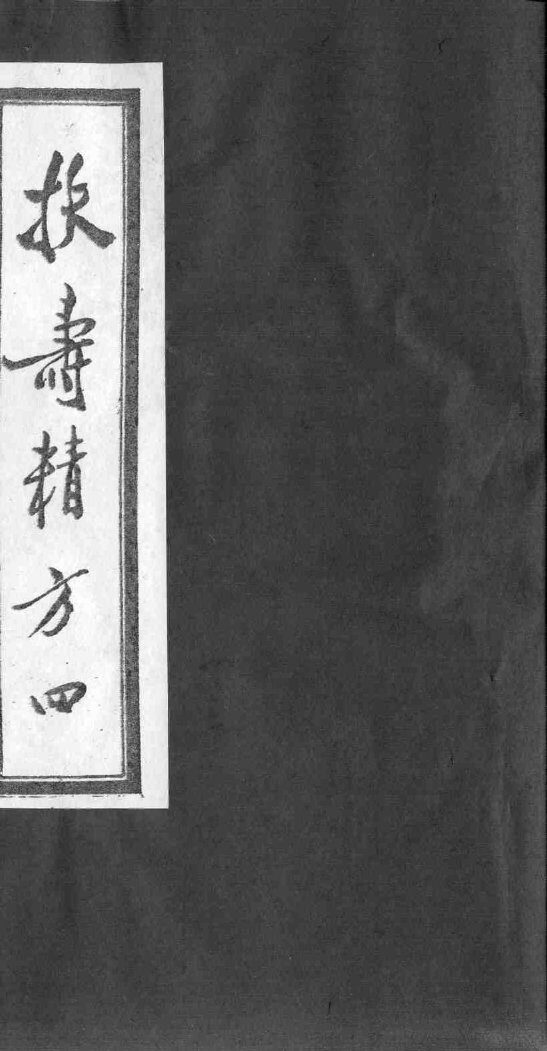 扶壽精方四